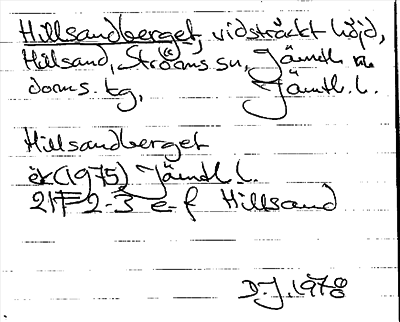 Hillsandberget, vidsträckt höjd,
Hillsand, Ströms sn, Jämtl. n
doms. tg, Jämtl. l.
Hillsandberget
ek (1975) Jämtl. l.
21F 2-3 e-f Hillsand
D.J. 1978